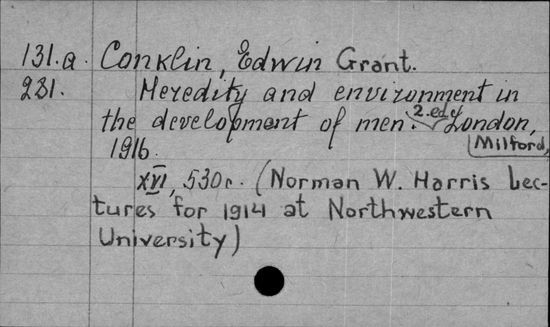 131.a. Conklin, Edwin Grant.
281. Heredity and environment in
the development of men. 2. ed. London,
1916. Milford,
XVI, 530 c. (Norman W. Harris Lec-
tures for 1914 at Northwestern
University)